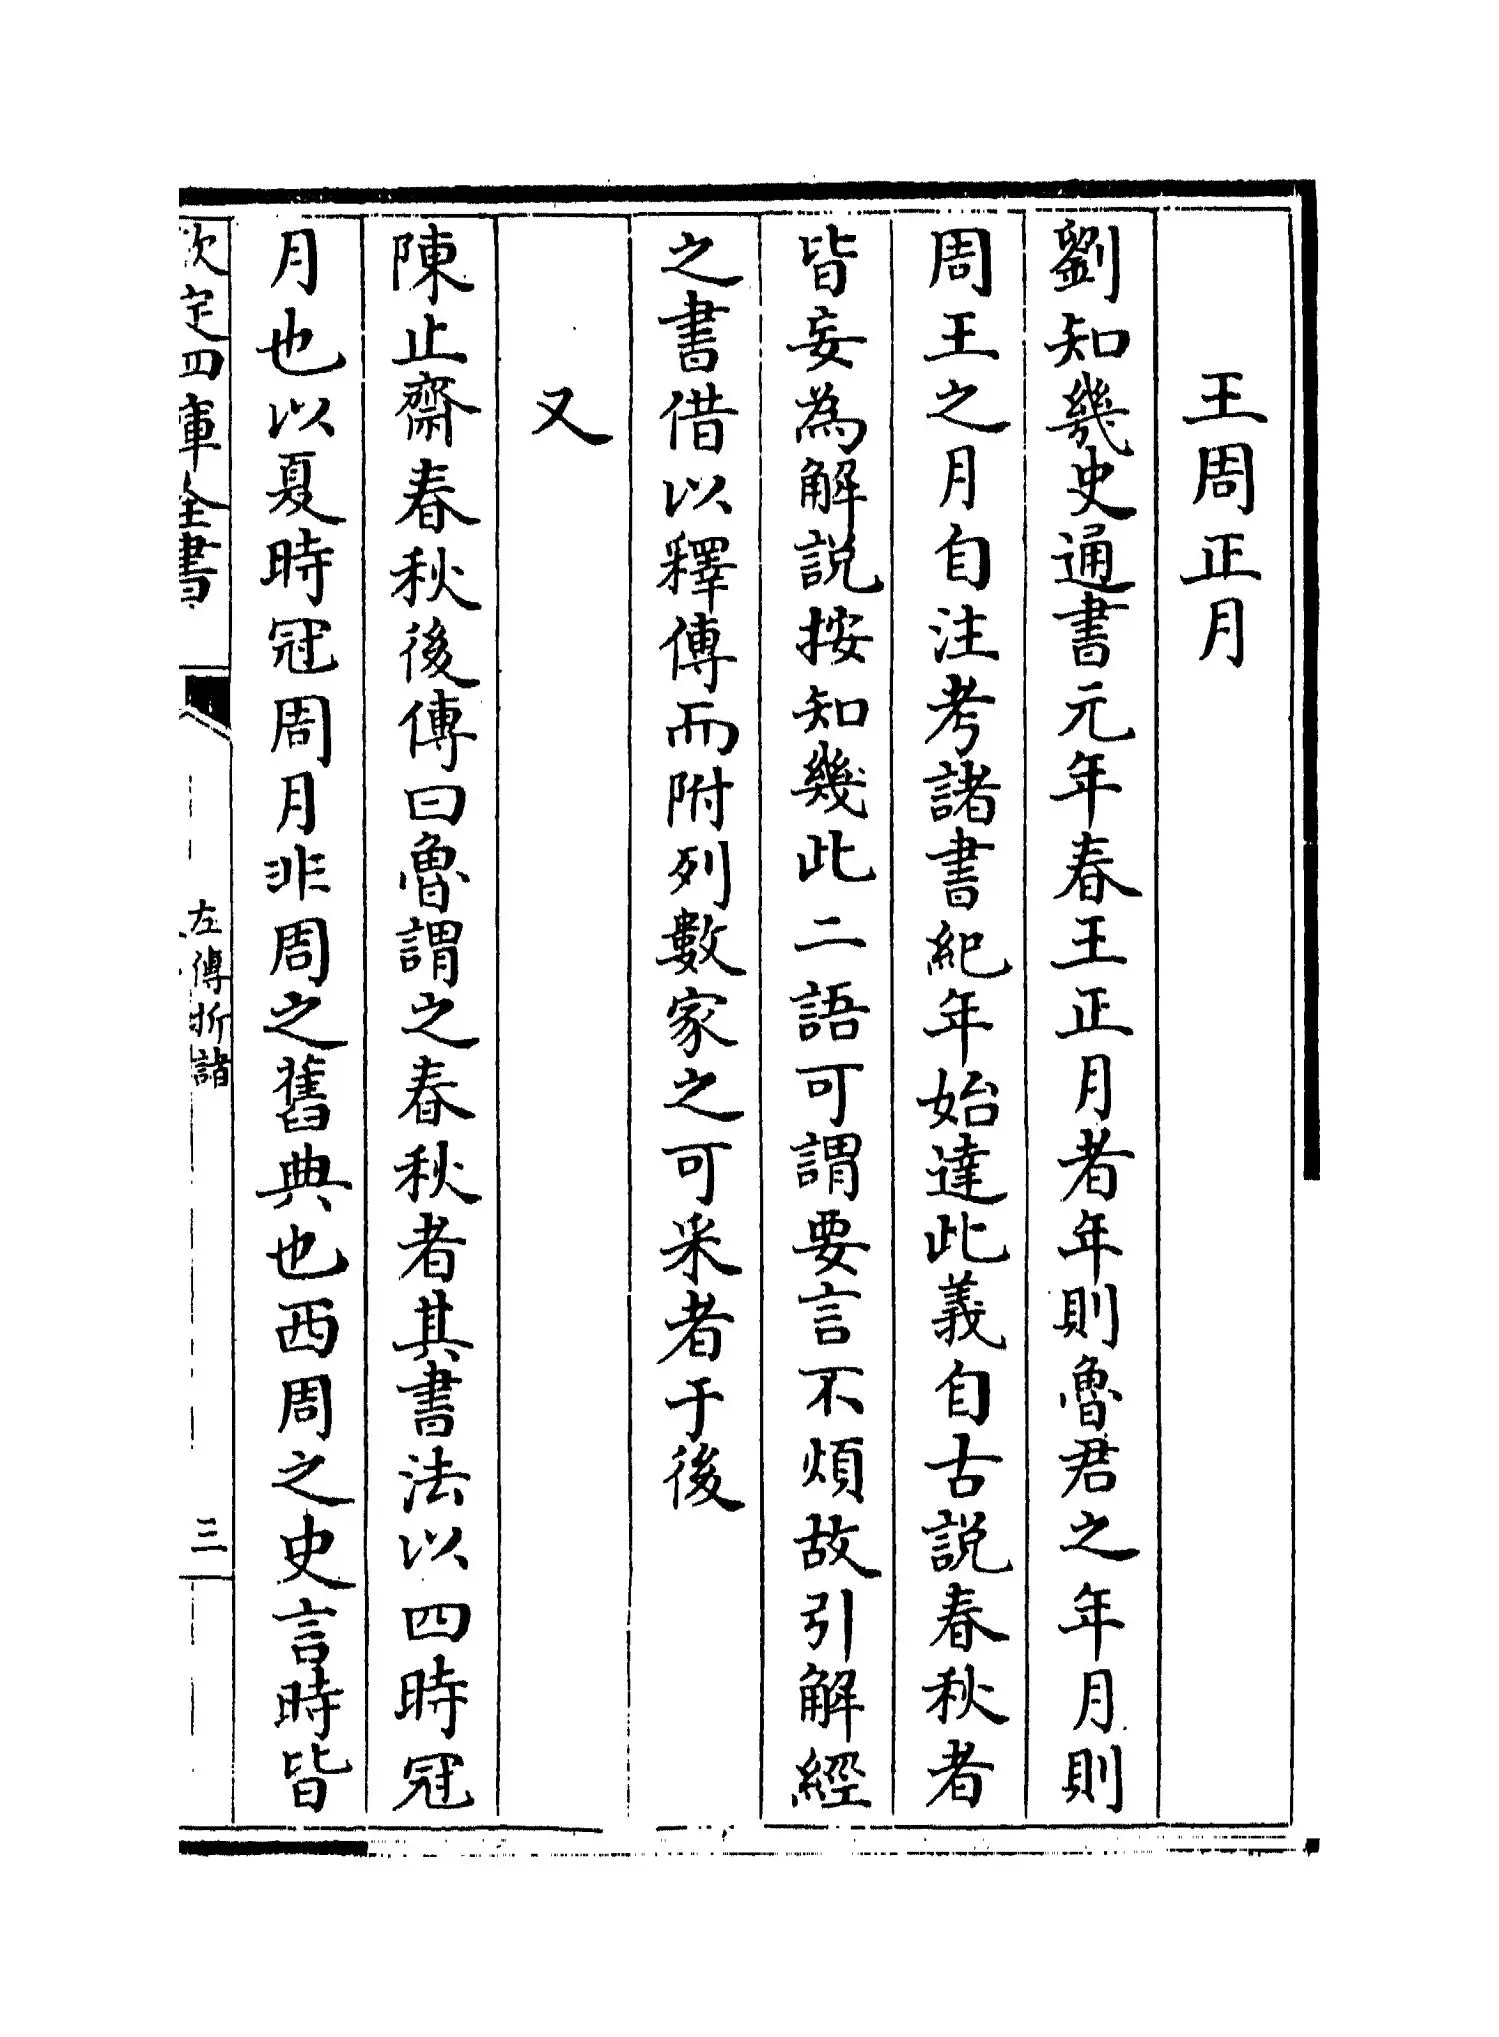 王周正月
劉知幾史通書元年春王正月者年則魯君之年月則
周王之月自注考諸書紀年始達此義自古説春秋者
皆妄為解説按知幾此二語可謂要言不煩故引解經
之書借以釋傳而附列數家之可采者于後
又
陳止齋春秋後傳曰魯謂之春秋者其書法以四時冠
月也以夏時冠周月非周之舊典也西周之史言時皆
欽定四庫全書
左傳折諸
三